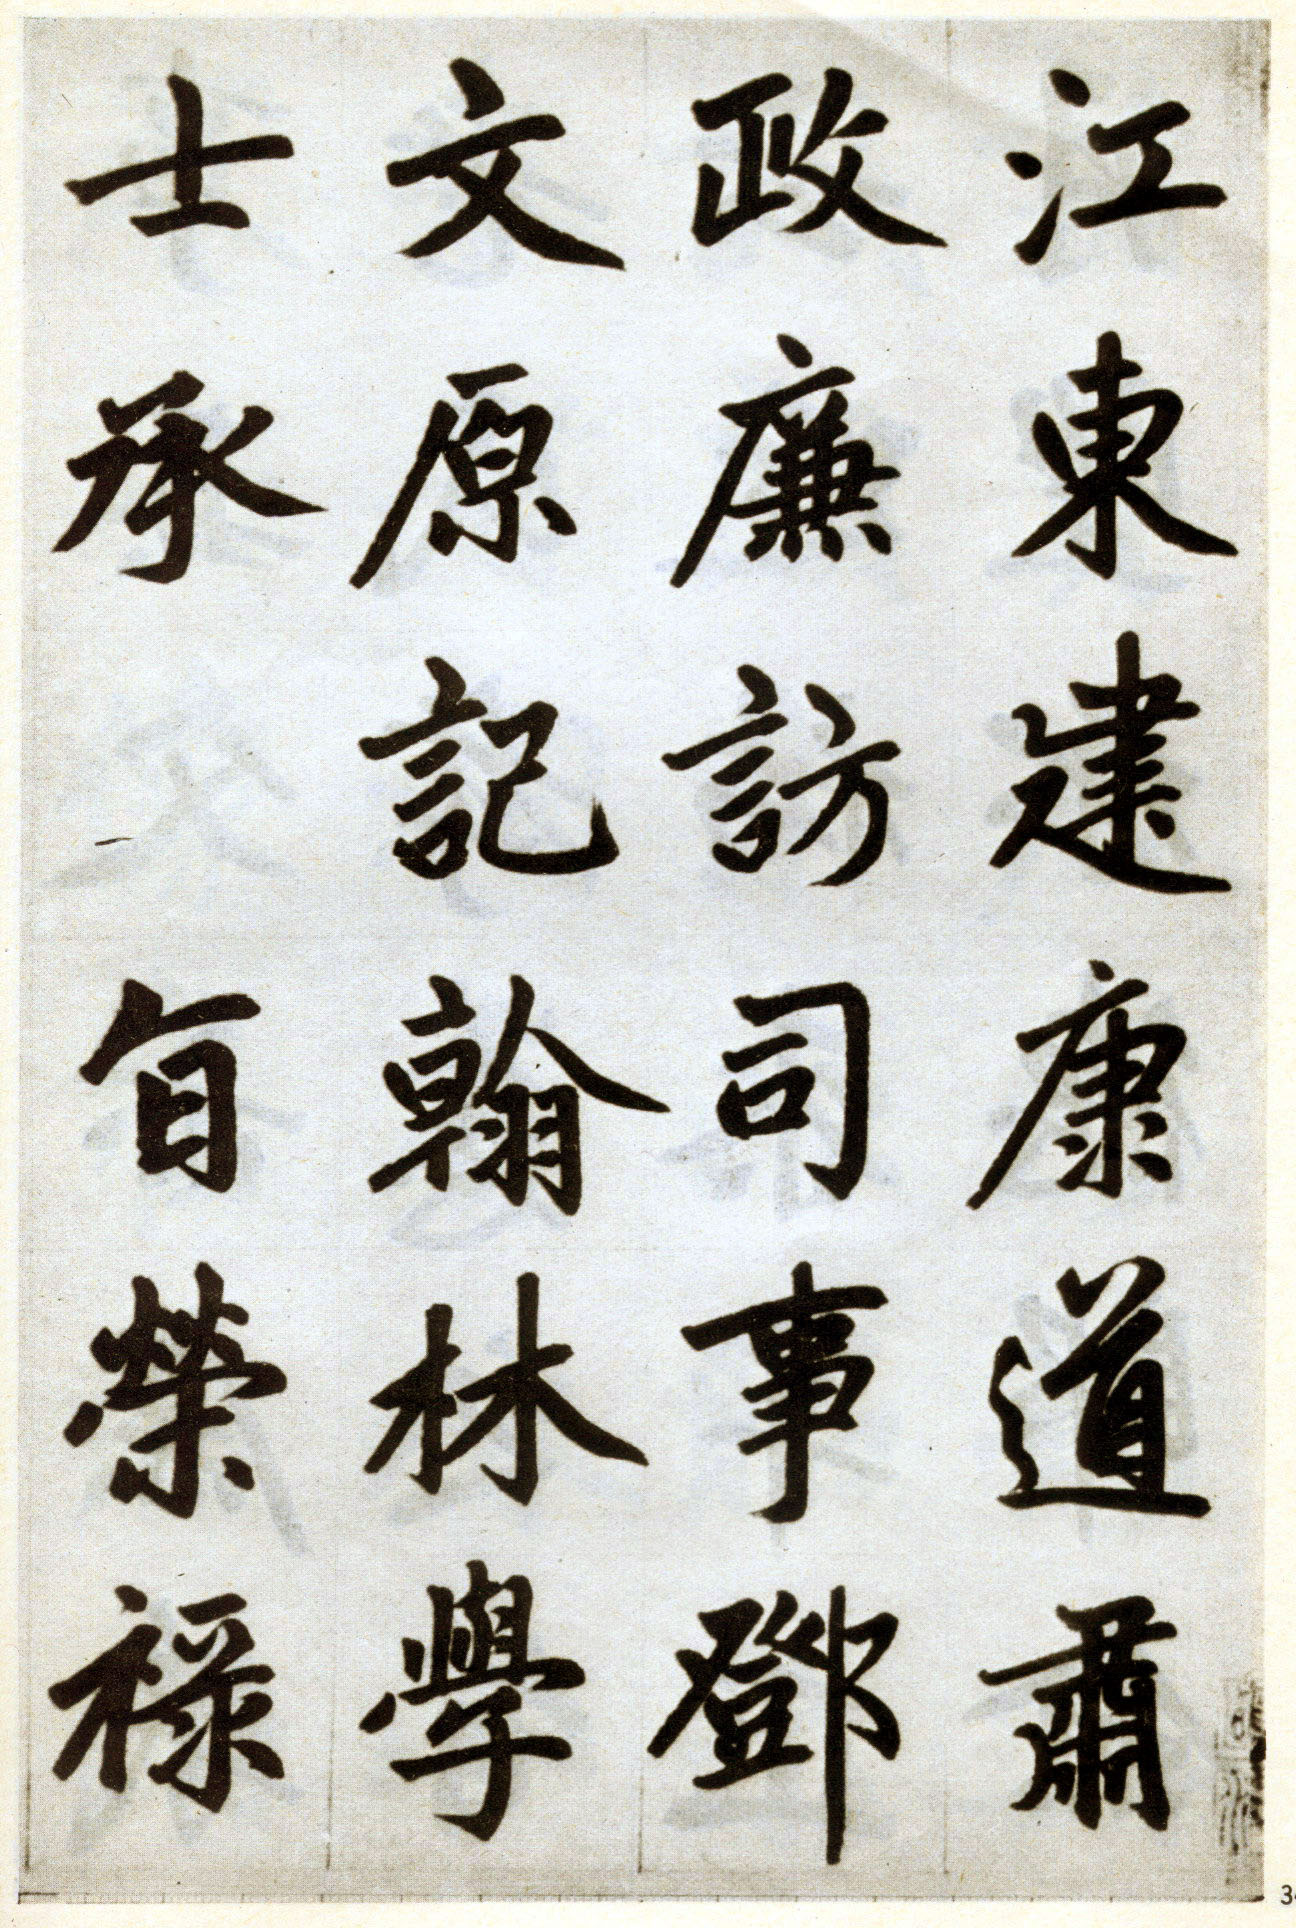 江東建康道肅
政廉訪司事鄧
文原記翰林學
士承 旨榮祿